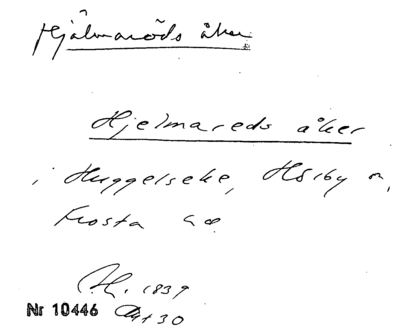 Hjälmaröds åker
Hjelmareds åker
i Huggelseke, Hörby sn,
Frosta hd
A.H. 1839
Nr 10446 Akt 30